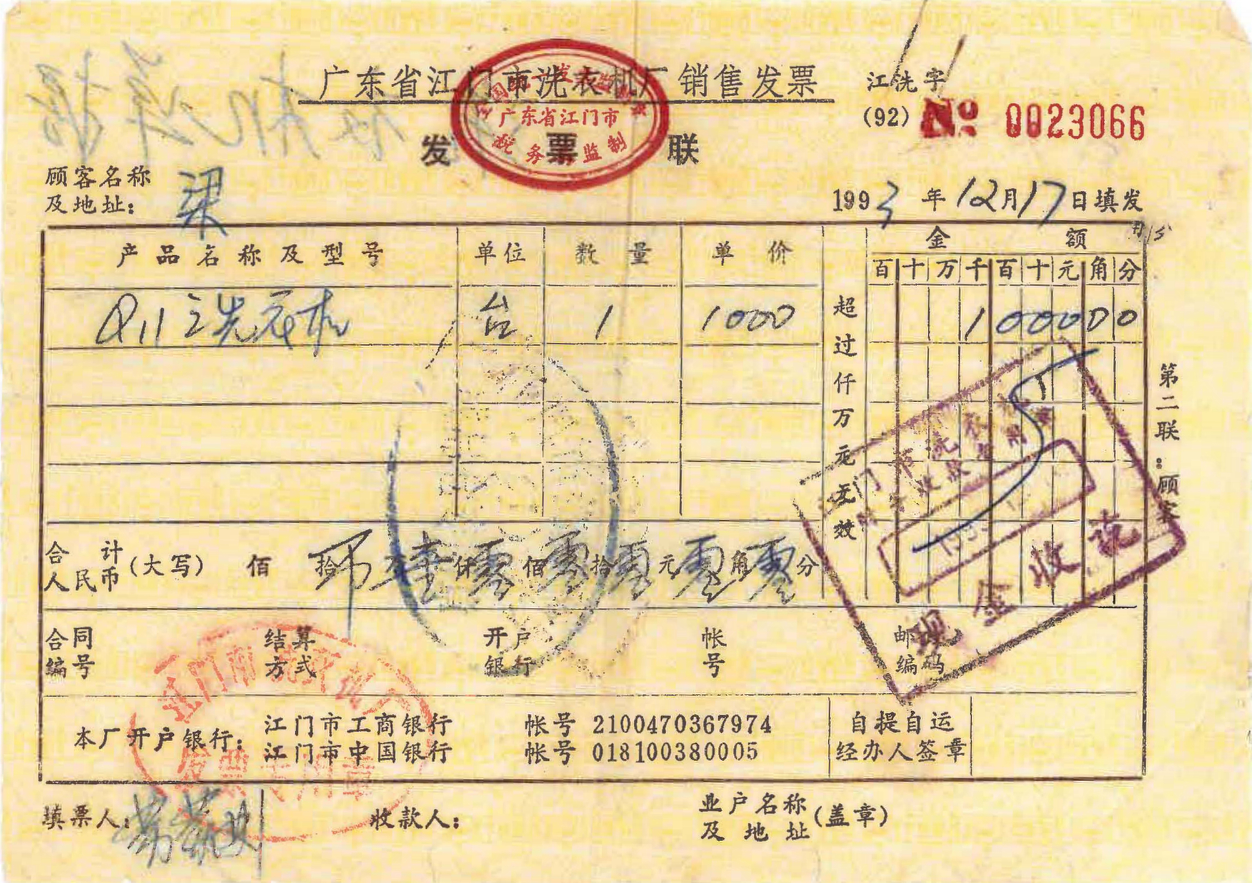 广东省江门市洗衣机厂销售发票
江洗字
(92) № 0023066
发票联
全国统一发票监制章
广东省江门市
税务局监制
顾客名称
及地址： 梁
1993年12月17日填发
产品名称及型号 单位 数量 单价 金额
百十万千百十元角分
洗衣机 台 1 1000 1000 00
超过仟万元无效
第二联：顾客
合计
人民币 (大写) 佰 拾 币 万 壹 仟 零 佰 零 拾 零 元 零 角 零 分
江门市洗衣机厂
现金收讫
合同编号 结算方式 开户银行 帐号 邮政编码
本厂开户银行： 江门市工商银行 帐号 2100470367974
江门市中国银行 帐号 018100380005
自提自运
经办人签章
江门市洗衣机厂
发票专用章
填票人： 收款人： 业户名称及地址 (盖章)